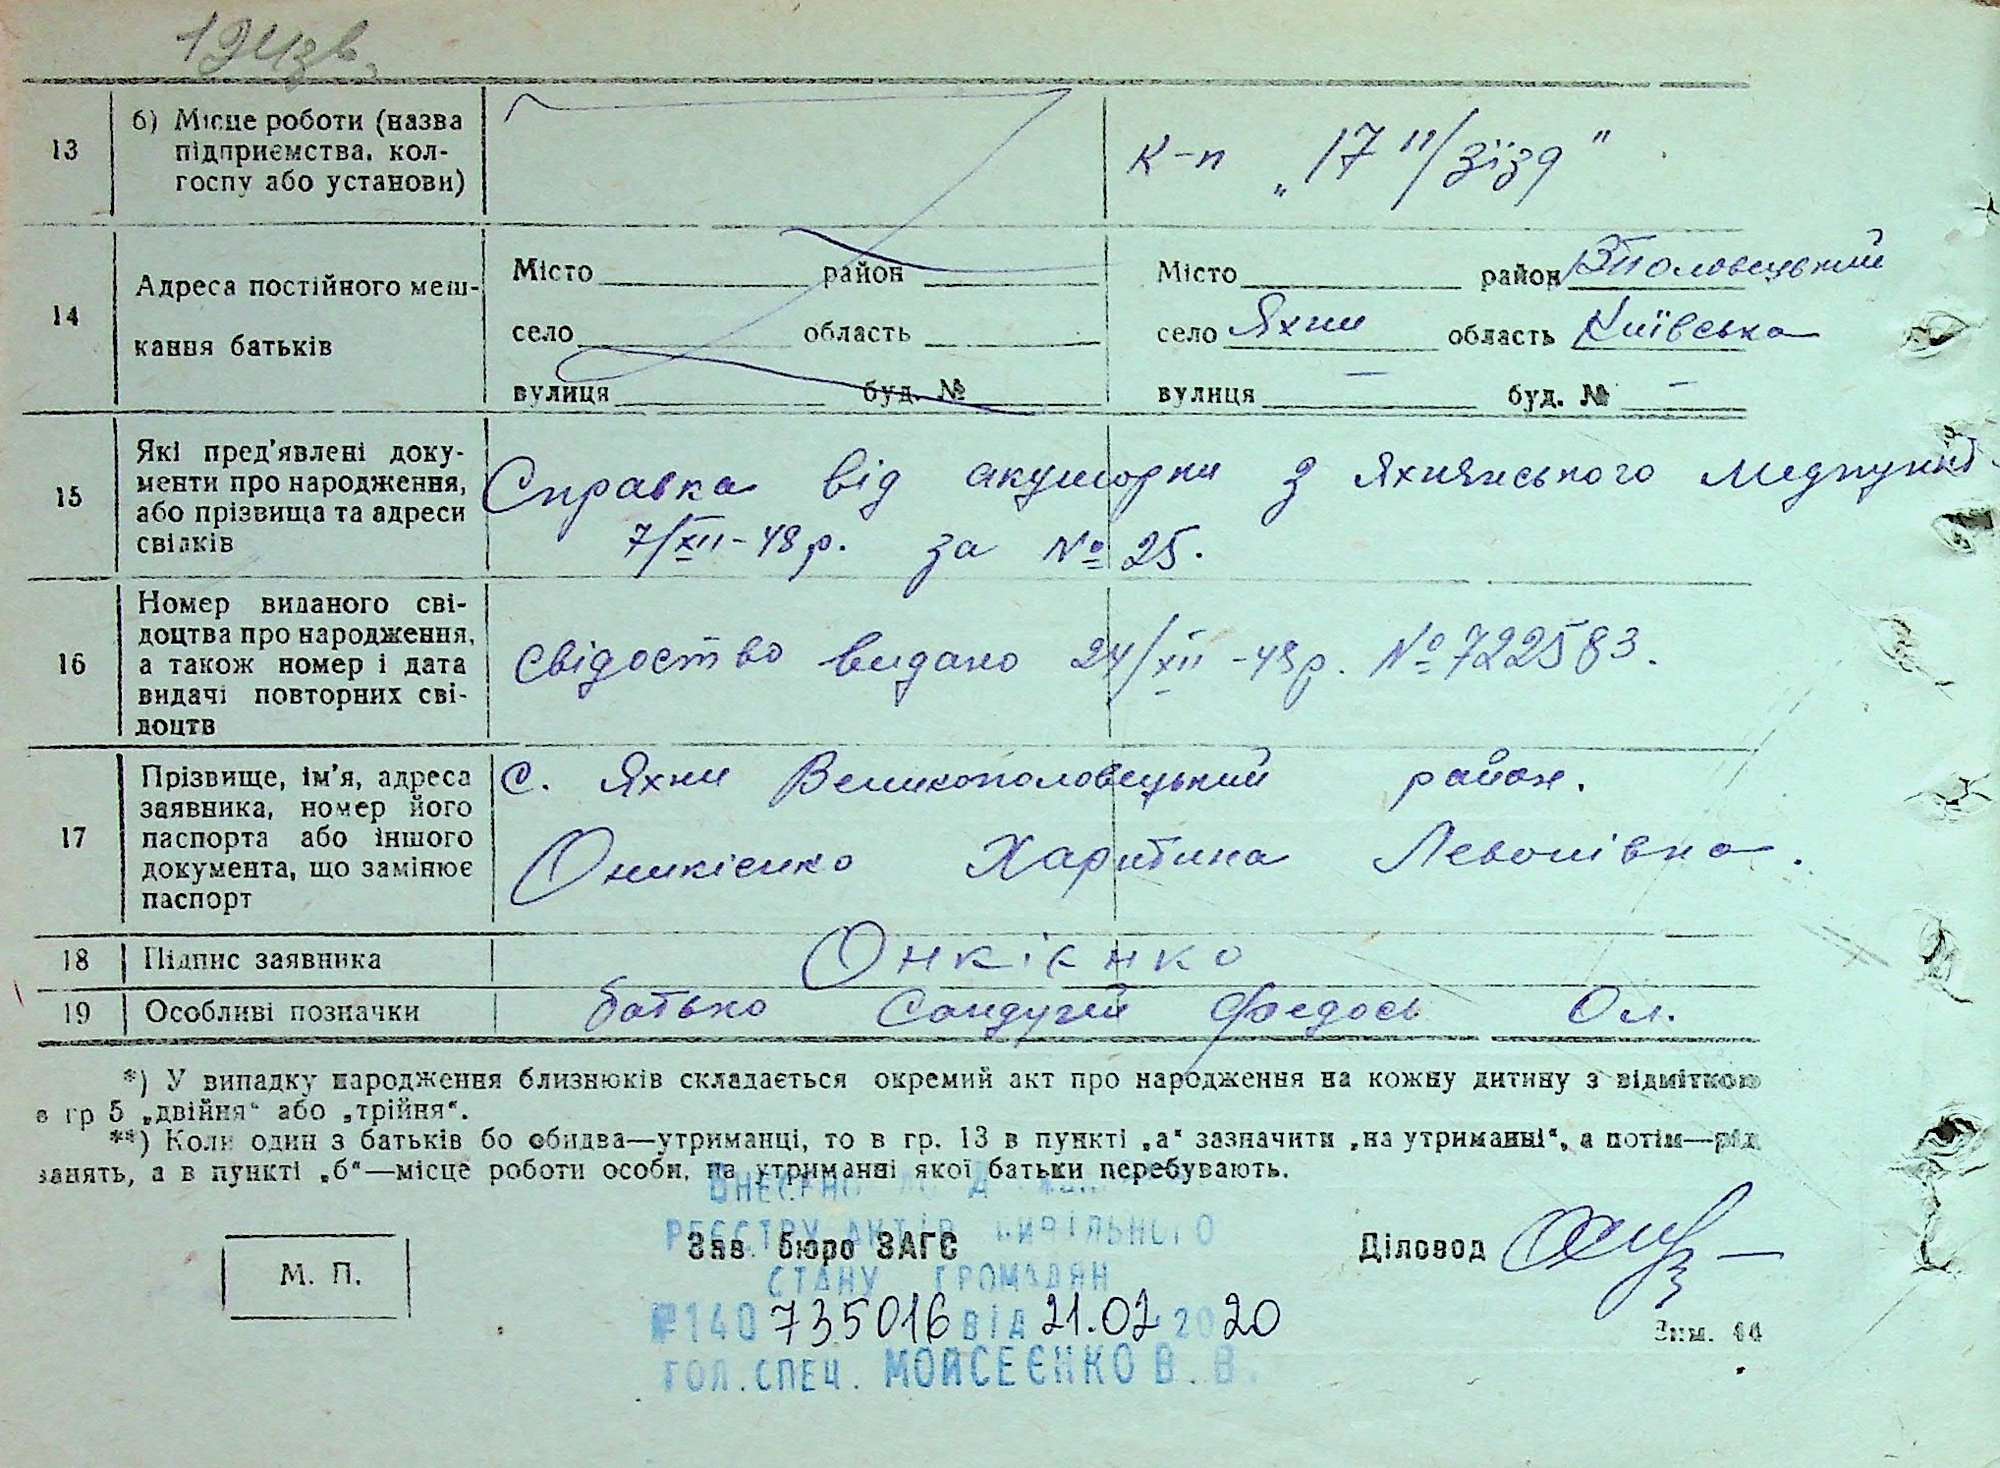 13
б) Місце роботи (назва
підприємства, кол-
госпу або установи)
к-п „17 п/зїзд"
14
Адреса постійного меш-
кання батьків
Місто район
село область
вулиця буд. №
Місто район Вполовецький
село Яхни область Київська
вулиця — буд. № —
15
Які пред'явлені доку-
менти про народження,
або прізвища та адреси
свілків
Справка від акушорки з Яхнянського медпункт
7/XII-48р. за № 25.
16
Номер виданого сві-
доцтва про народження,
а також номер і дата
видачі повторних сві-
доцтв
Свідоство видано 24/XII-48р. № 722583.
17
Прізвище, ім'я, адреса
заявника, номер його
паспорта або іншого
документа, що замінює
паспорт
С. Яхни Великополовецький район.
Оникієнко Харитина Левонівна.
18
Підпис заявника
Онкієнко
19
Особливі позначки
батько Сандугей Федось Ол.
*) У випадку народження близнюків складається окремий акт про народження на кожну дитину з відміткою
в гр 5 „двійня" або „трійня".
**) Коли один з батьків бо обидва—утриманці, то в гр. 13 в пункті „а" зазначити „на утриманні", а потім—рід
занять, а в пункті „б"—місце роботи особи, на утриманні якої батьки перебувають.
ВНЕСЕНО ДО
РЕЄСТРУ АКТІВ ЦИВІЛЬНОГО
Зав. бюро ЗАГС
Діловод
М. П.
СТАНУ ГРОМАДЯН
№140 735016 ВІД 21.02 2020
Зам. 44
ГОЛ. СПЕЦ. МОЙСЕЄНКО В. В.